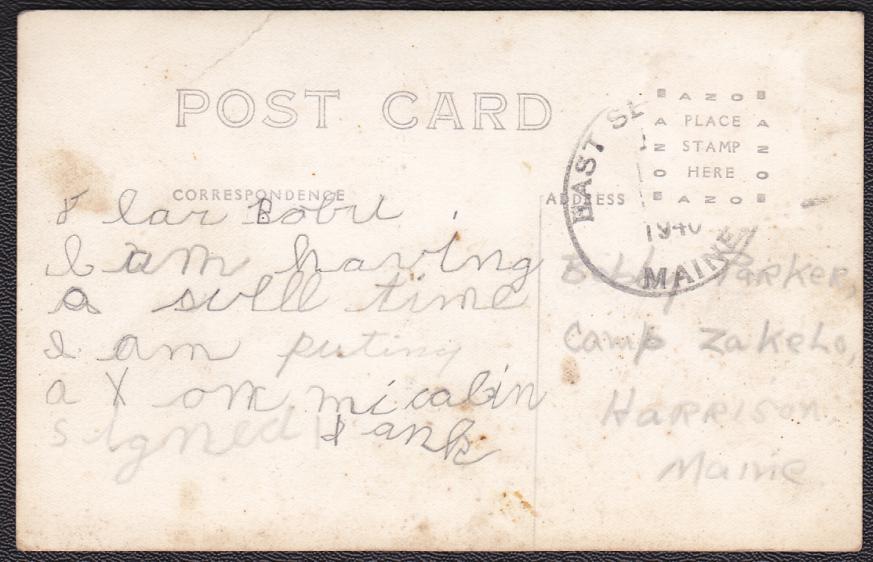 POST CARD
CORRESPONDENCE
ADDRESS
AZO
PLACE
STAMP
HERE
AZO
EAST SE
1940
MAINE
Dear Bobu
I am having
a swell time
I am puting
a X on mi cabin
signed Hank
Bobby Parker,
Camp Zakelo,
Harrison
Maine